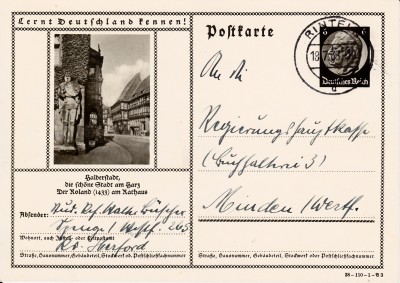 Lernt Deutschland kennen!
Halberstadt,
die schöne Stadt am Harz
Der Roland (1433) am Rathaus
Absender:
Spenge / Westf. 205
Wohnort, auch Zustell- oder Leitpostamt
Kr. Herford
Straße, Hausnummer, Gebäudeteil, Stockwerk od. Postschließfachnummer
Postkarte
6 6
Deutsches Reich
RINTELN
An die
Regierungshauptkasse
(Buchhalterei 3)
Minden / Westf.
Straße, Hausnummer, Gebäudeteil, Stockwerk oder Postschließfachnummer
38-110-1-B3